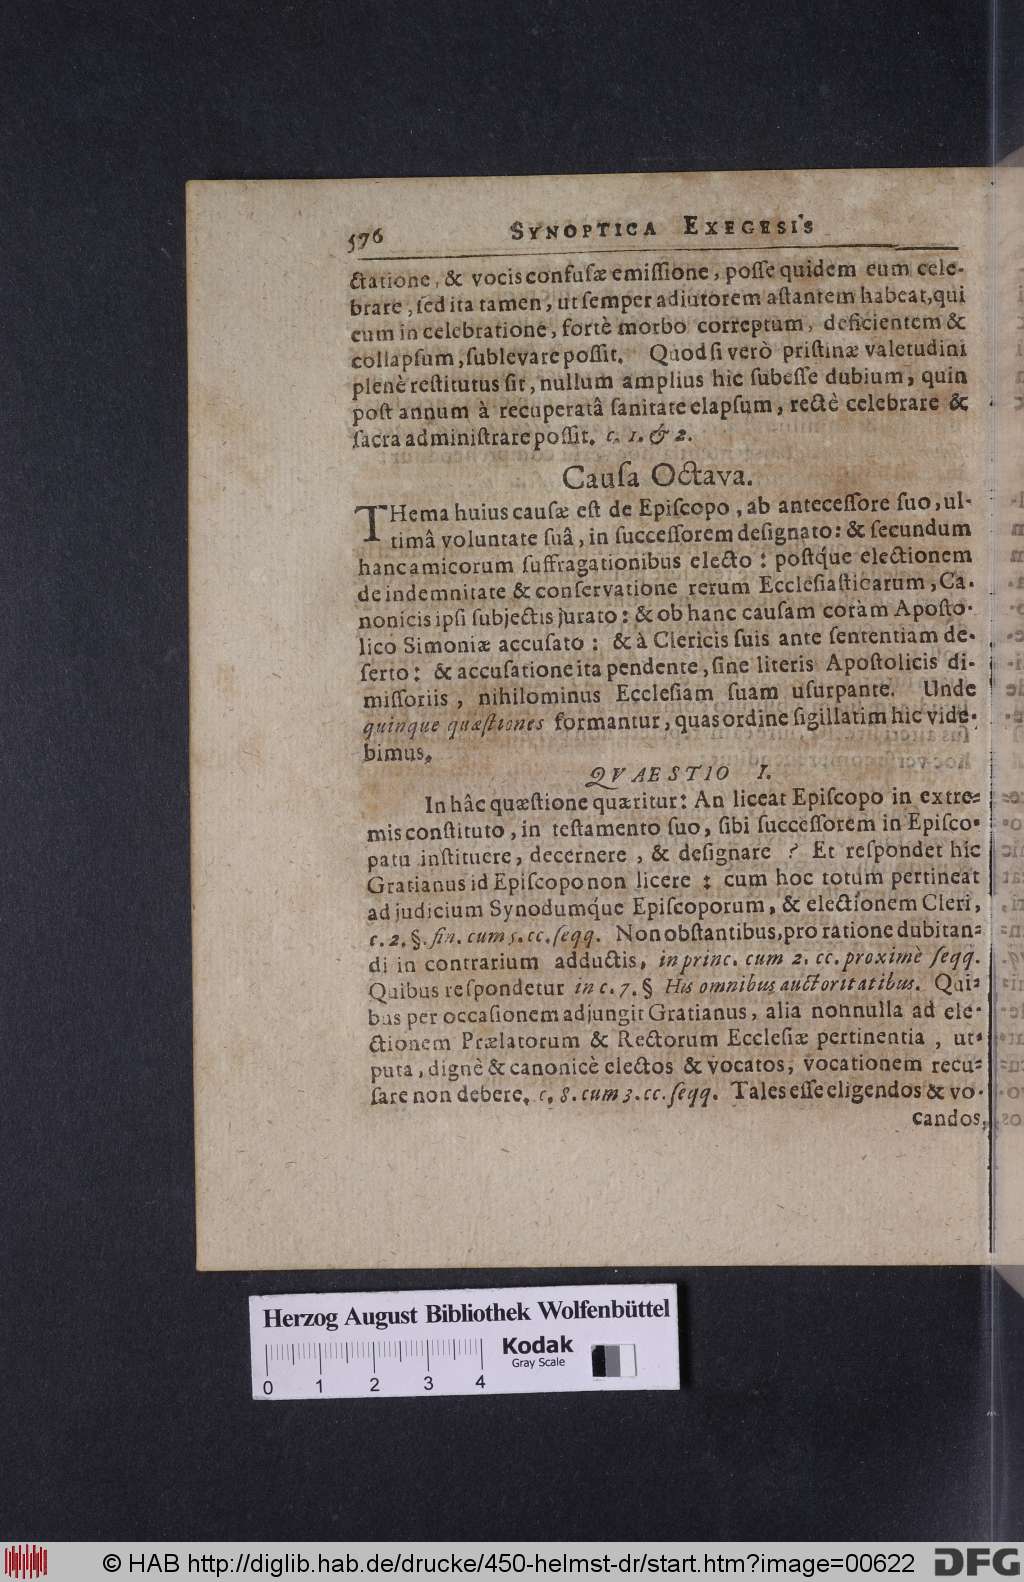 576 SYNOPTICA EXEGESIS
ctatione, & vocis confusæ emissione, posse quidem eum cele-
brare, sed ita tamen, ut semper adiutorem astantem habeat, qui
eum in celebratione, fortè morbo correptum, deficientem &
collapsum, sublevare possit. Quod si verò pristinæ valetudini
plenè restitutus sit, nullum amplius hic subesse dubium, quin
post annum à recuperatâ sanitate elapsum, rectè celebrare &
sacra administrare possit. c. 1. & 2.
Causa Octava.
THema huius causæ est de Episcopo, ab antecessore suo, ul-
timâ voluntate suâ, in successorem designato: & secundum
hanc amicorum suffragationibus electo: postq́ue electionem
de indemnitate & conservatione rerum Ecclesiasticarum, Ca-
nonicis ipsi subjectis jurato: & ob hanc causam coràm Aposto-
lico Simoniæ accusato: & à Clericis suis ante sententiam de-
serto: & accusatione ita pendente, sine literis Apostolicis di-
missoriis, nihilominus Ecclesiam suam usurpante. Unde
quinque quæstiones formantur, quas ordine sigillatim hic vide-
bimus.
QVAESTIO I.
In hâc quæstione quæritur: An liceat Episcopo in extre-
mis constituto, in testamento suo, sibi successorem in Episco-
patu instituere, decernere, & designare? Et respondet hic
Gratianus id Episcopo non licere: cum hoc totum pertineat
ad judicium Synodumq́ue Episcoporum, & electionem Cleri,
c. 2. §. fin. cum 5. cc. seqq. Non obstantibus, pro ratione dubitan-
di in contrarium adductis, in princ. cum 2. cc. proximè seqq.
Quibus respondetur in c. 7. § His omnibus auctoritatibus. Qui-
bus per occasionem adjungit Gratianus, alia nonnulla ad ele-
ctionem Prælatorum & Rectorum Ecclesiæ pertinentia, ut-
puta, dignè & canonicè electos & vocatos, vocationem recu-
sare non debere, c. 8. cum 3. cc. seqq. Tales esse eligendos & vo-
candos,
Herzog August Bibliothek Wolfenbüttel
Kodak
Gray Scale
0 1 2 3 4
© HAB http://diglib.hab.de/drucke/450-helmst-dr/start.htm?image=00622 DFG